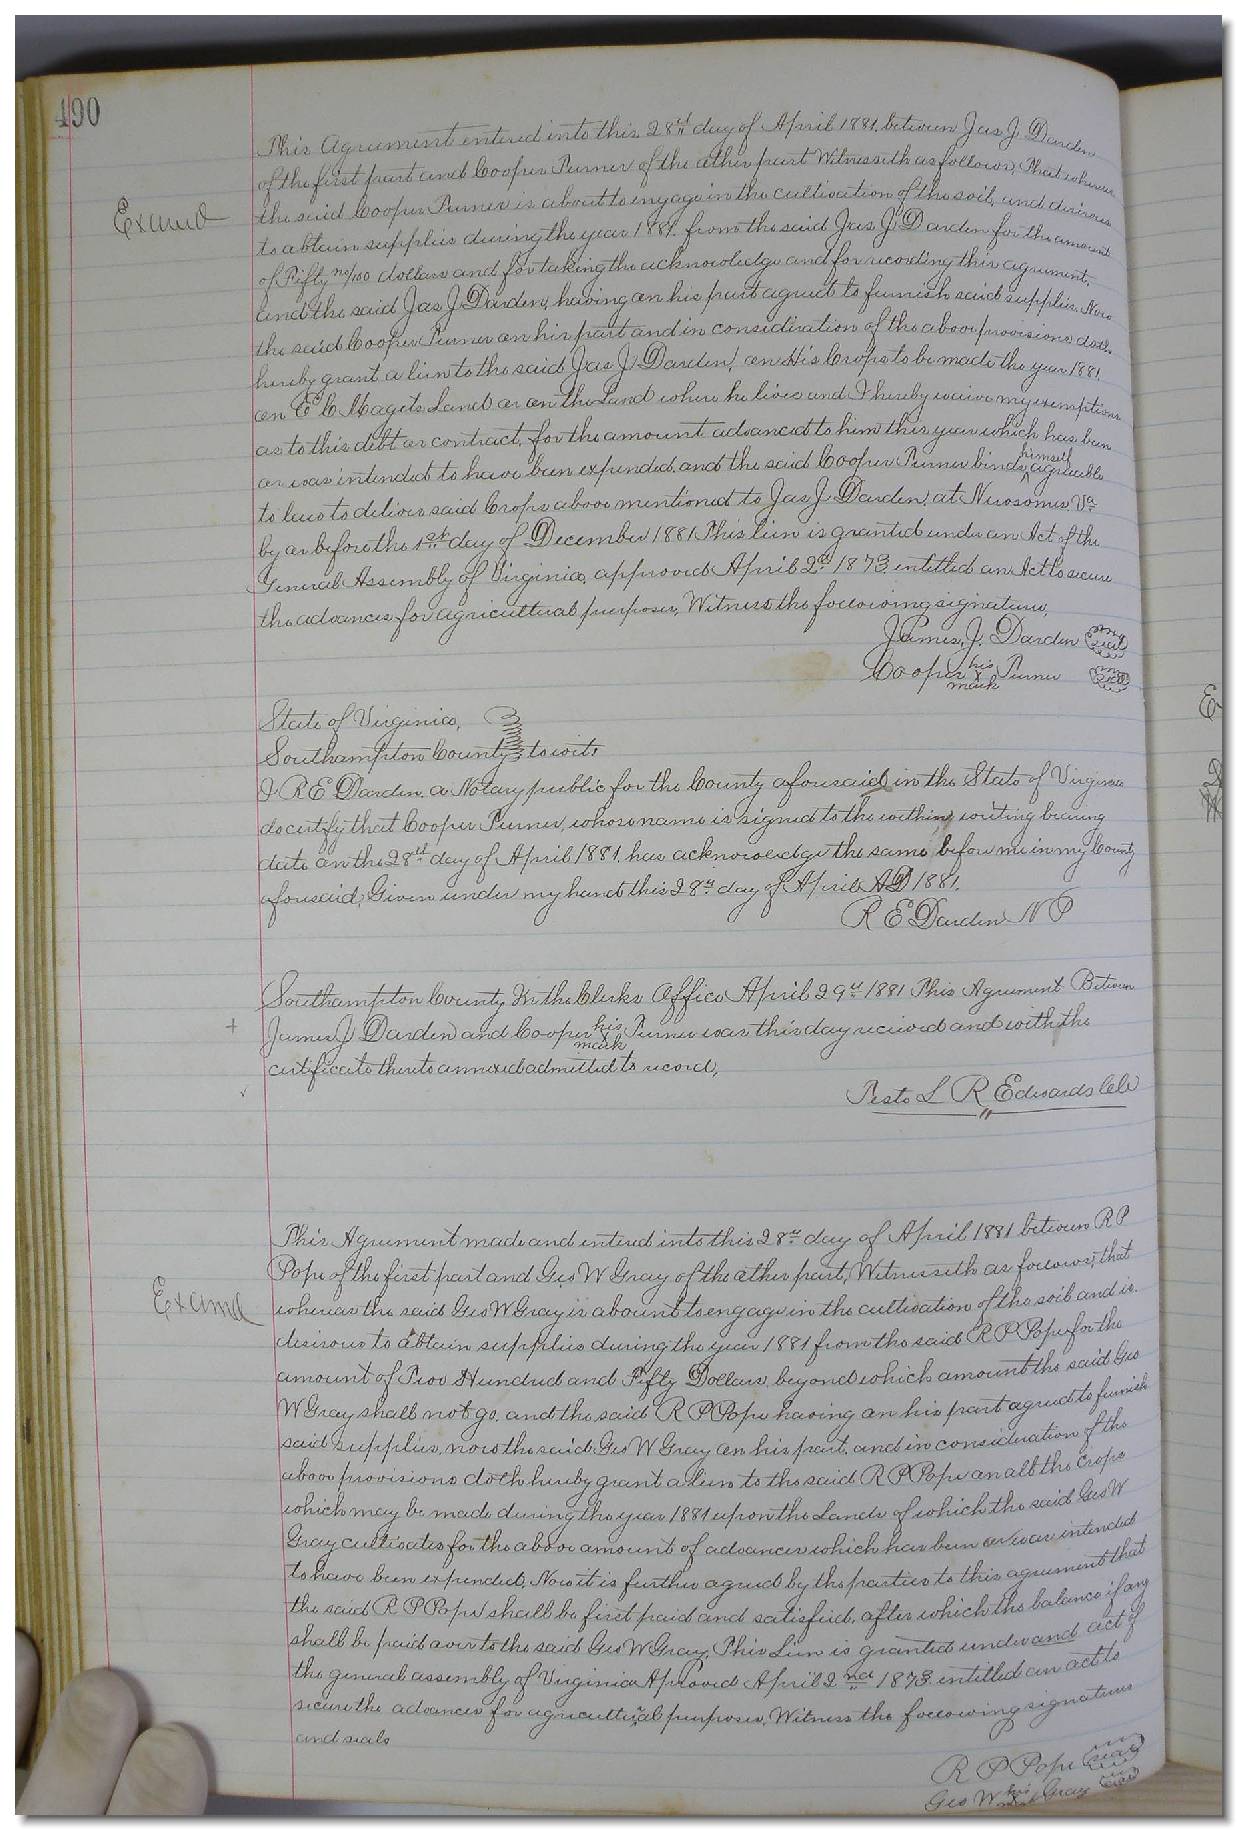 490
Examd
This Agreement entered into this 28th day of April 1881. between Jas J. Darden
of the first part and Cooper Turner of the other part Witnesseth as follows, That whereas
the said Cooper Turner is about to engage in the cultivation of the soil, and desirous
to obtain supplies during the year 1881. from the said Jas J Darden for the amount
of Fifty no/100 dollars and for taking the acknowledge and for recording this agreement,
and the said Jas J Darden, having on his part agreed to furnish said supplies. Now
the said Cooper Turner on his part and in consideration of the above provisions doth
hereby grant a lien to the said Jas J Darden, on His Crops to be made the year 1881.
on E C Magets Land or on the Land where he lives and I hereby waive my exemptions
as to this debt or contract. for the amount advanced to him this year which has been
or was intended to have been expended. and the said Cooper Turner binds himself agreeable
to law to deliver said Crops above mentioned to Jas J. Darden. at Newsoms Va
by or before the 1st day of December 1881 This lien is granted under an Act of the
General Assembly of Virginia, approved April 2d 1873. entitled an Act to secure
the advances for agricultural purposes, Witness the following signature,
James. J. Darden seal
Cooper his x mark Turner seal
State of Virginia,
Southampton County to wit:
I R E Darden. a Notary public for the County aforesaid in the State of Virginia
do certify that Cooper Turner, whose name is signed to the within writing bearing
date on the 28th day of April 1881. has acknowledge the same before me in my County
aforesaid, Given under my hand this 28th day of April AD 1881.
R E Darden N P
Southampton County In the Clerks Office April 29th 1881 This Agreement Between
James J Darden and Cooper his x mark Turner was this day received and with the
certificate thereto annexed admitted to record,
Teste L R Edwards Clk
Examd
This Agreement made and entered into this 28th day of April 1881 between R P
Pope of the first part and Geo W Gray of the other part, Witnesseth as follows, that
whereas the said Geo W Gray is abount to engage in the cultivation of the soil and is
desirous to obtain supplies during the year 1881 from the said R P Pope for the
amount of Two Hundred and Fifty Dollars, beyond which amount the said Geo
W Gray shall not go, and the said R P Pope having on his part agreed to furnish
said supplies, now the said Geo W Gray on his part, and in consideration of the
above provisions doth hereby grant a lien to the said R P Pope on all the crops
which may be made during the year 1881 upon the Lands of which the said Geo W
Gray cultivates for the above amount of advances which has been or was intended
to have been expended, Now it is further agreed by the parties to this agreement that
the said R P Pope shall be first paid and satisfied, after which the balance if any
shall be paid over to the said Geo W Gray, This Lien is granted under and act of
the general assembly of Virginia Aproved April 2nd 1873 entitled an act to
secure the advances for agricultural purposes, Witness the following signatures
and seals
R P Pope seal
Geo W his x mark Gray seal